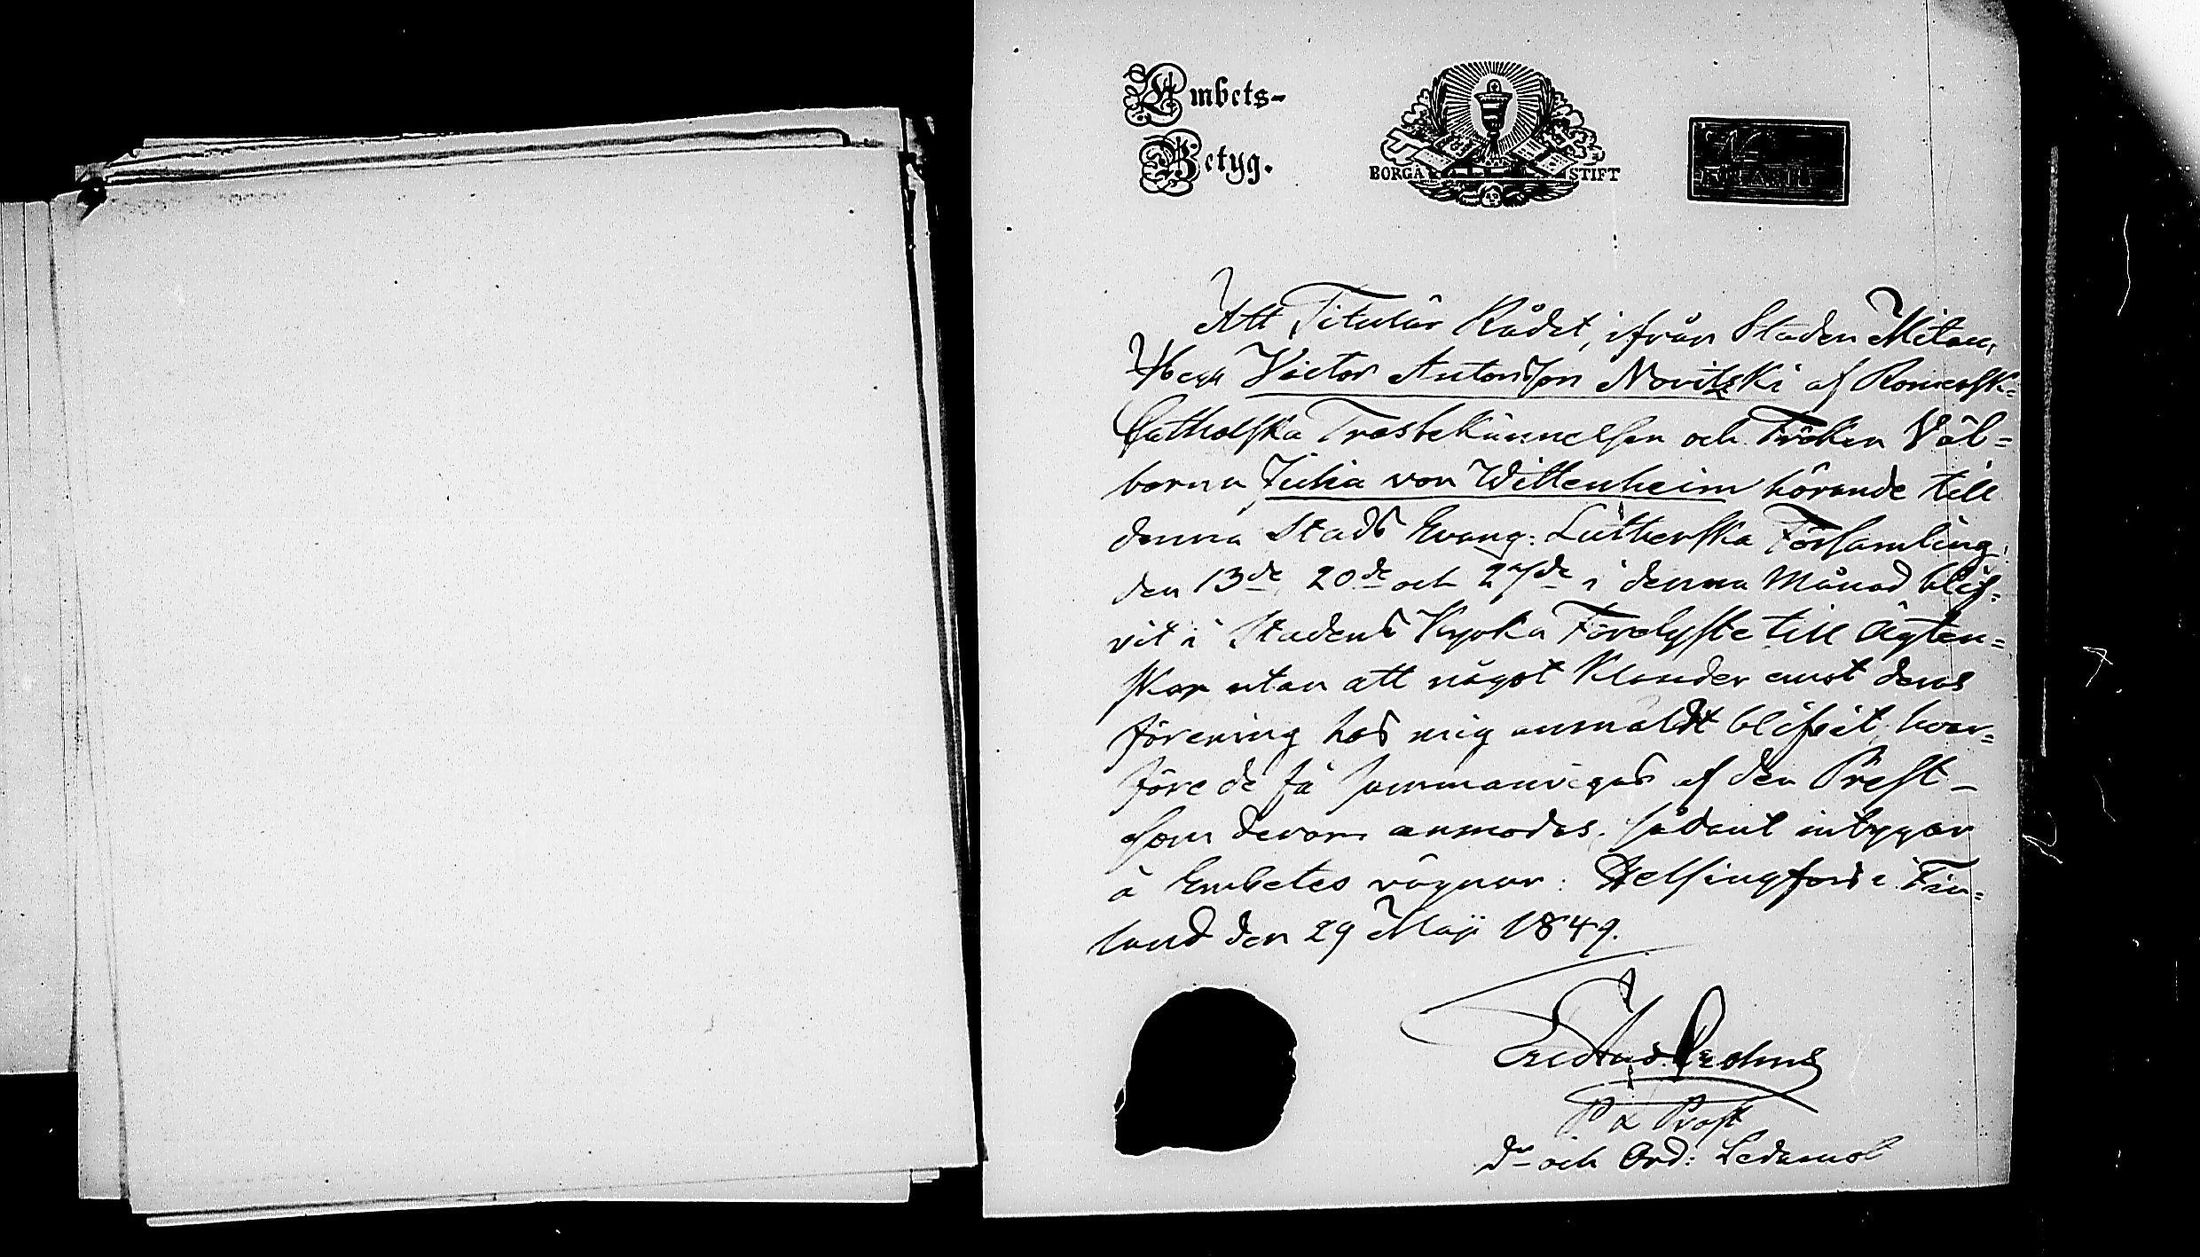 Embets-
Betyg.
BORGÅ STIFT
Att Titulär Rådet, ifrån Staden Mitau,
Herr Victor Antonsson Novitzki af Romersk=
Catholska Trosbekännelsen och Fröken Väl=
borna Julia von Wittenheim hörande till
denna Stads Evang: Lutherska Församling,
den 13de, 20de och 27de i denna Månad blif=
vit i Stadens Kyrka Förelyste till Ägten=
skap utan att något Klander emot deras
förening hos mig anmäldt blifvit, hvar=
före de få sammanvigas af den Prest
som derom anmodas. sådant intygar
å Embetes vägnar: Helsingfors i Fin=
land den 29 Maji 1849.
Prost
och Ord: Ledamot